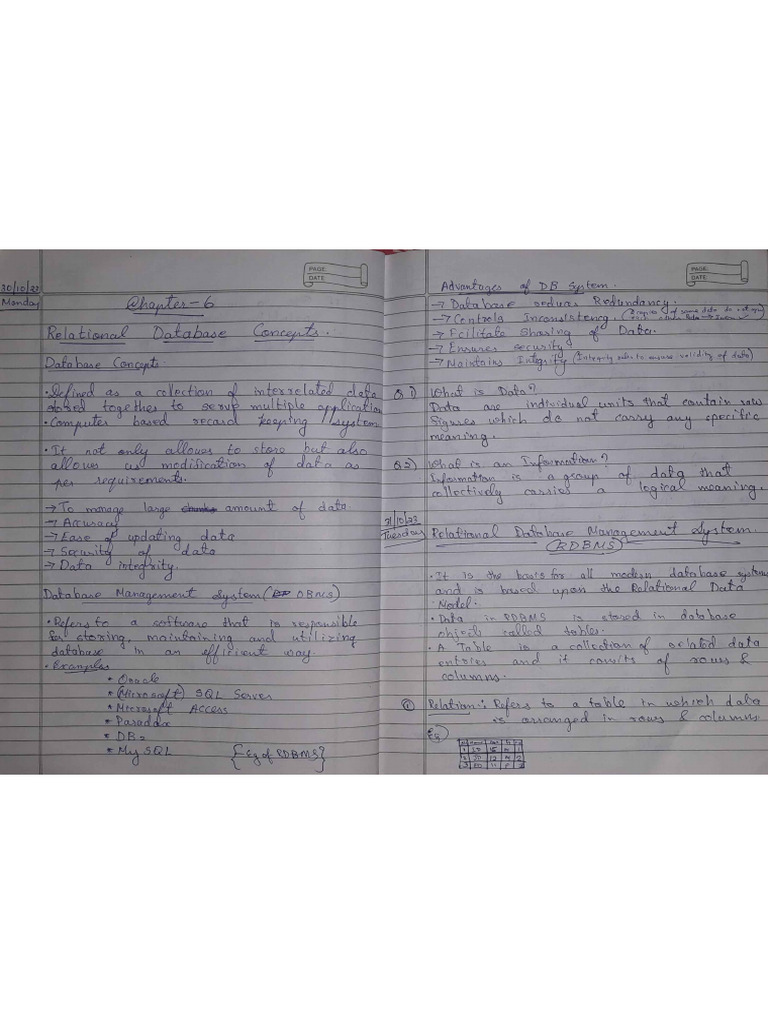 30/10/23
Monday
PAGE:
DATE:
Chapter-6
Relational Database Concepts.
Database Concepts
• Defined as a collection of interrelated data
stored together to serve multiple application
• Computer based record keeping system
• It not only allows to store but also
allows us modification of data as
per requirements.
→ To manage large amount of data.
→ Accuracy
→ Ease of updating data
→ Security of data
→ Data integrity.
Database Management System (DBMS)
• Refers to a software that is responsible
for storing, maintaining and utilizing
database in an efficient way.
• Examples
* Oracle
* (Microsoft) SQL Server
* Microsoft Access
* Paradox
* DB2
* My SQL {Eg of RDBMS}
PAGE:
DATE:
Advantages of DB System.
→ Database reduces Redundancy.
→ Controls Inconsistency.
→ Fcilitate Sharing of Data.
→ Ensures security
→ Maintains Integrity (Integrity rules to ensure validity of data)
Q.1) What is Data?
Data are individual units that contain raw
figures which do not carry any specific
meaning.
Q.2) What is an Information?
Information is a group of data that
collectively carries a logical meaning.
31/10/23
Tuesday
Relational Database Management System.
(RDBMS)
• It is the basis for all modern database systems
and is based upon the Relational Data
Model.
• Data in RDBMS is stored in database
object called tables.
• A Table is a collection of related data
entries and it consits of rows &
columns.
Relation:- Refers to a table in which data
is arranged in rows & columns
Eg